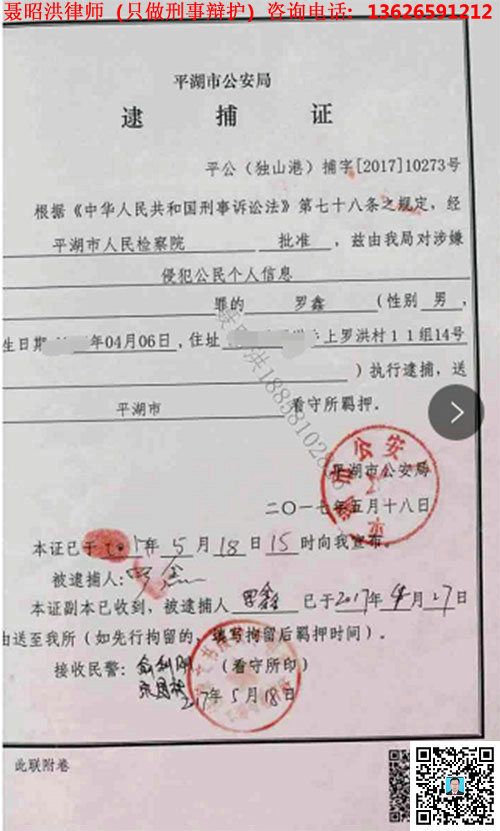 聂昭洪律师（只做刑事辩护）咨询电话：13626591212
平湖市公安局
逮捕证
平公（独山港）捕字[2017]10273号
根据《中华人民共和国刑事诉讼法》第七十八条之规定，经
平湖市人民检察院 批准，兹由我局对涉嫌
侵犯公民个人信息
罪的 罗鑫 （性别 男，
生日期 年04月06日，住址 上罗洪村11组14号
）执行逮捕，送
平湖市 看守所羁押。
平湖市公安局
二〇一七年五月十八日
本证已于2017年5月18日15时向我宣布。
被逮捕人：
本证副本已收到，被逮捕人 罗鑫 已于2017年4月27日
由送至我所（如先行拘留的，填写拘留后羁押时间）。
接收民警： （看守所印）
2017年5月18日
此联附卷